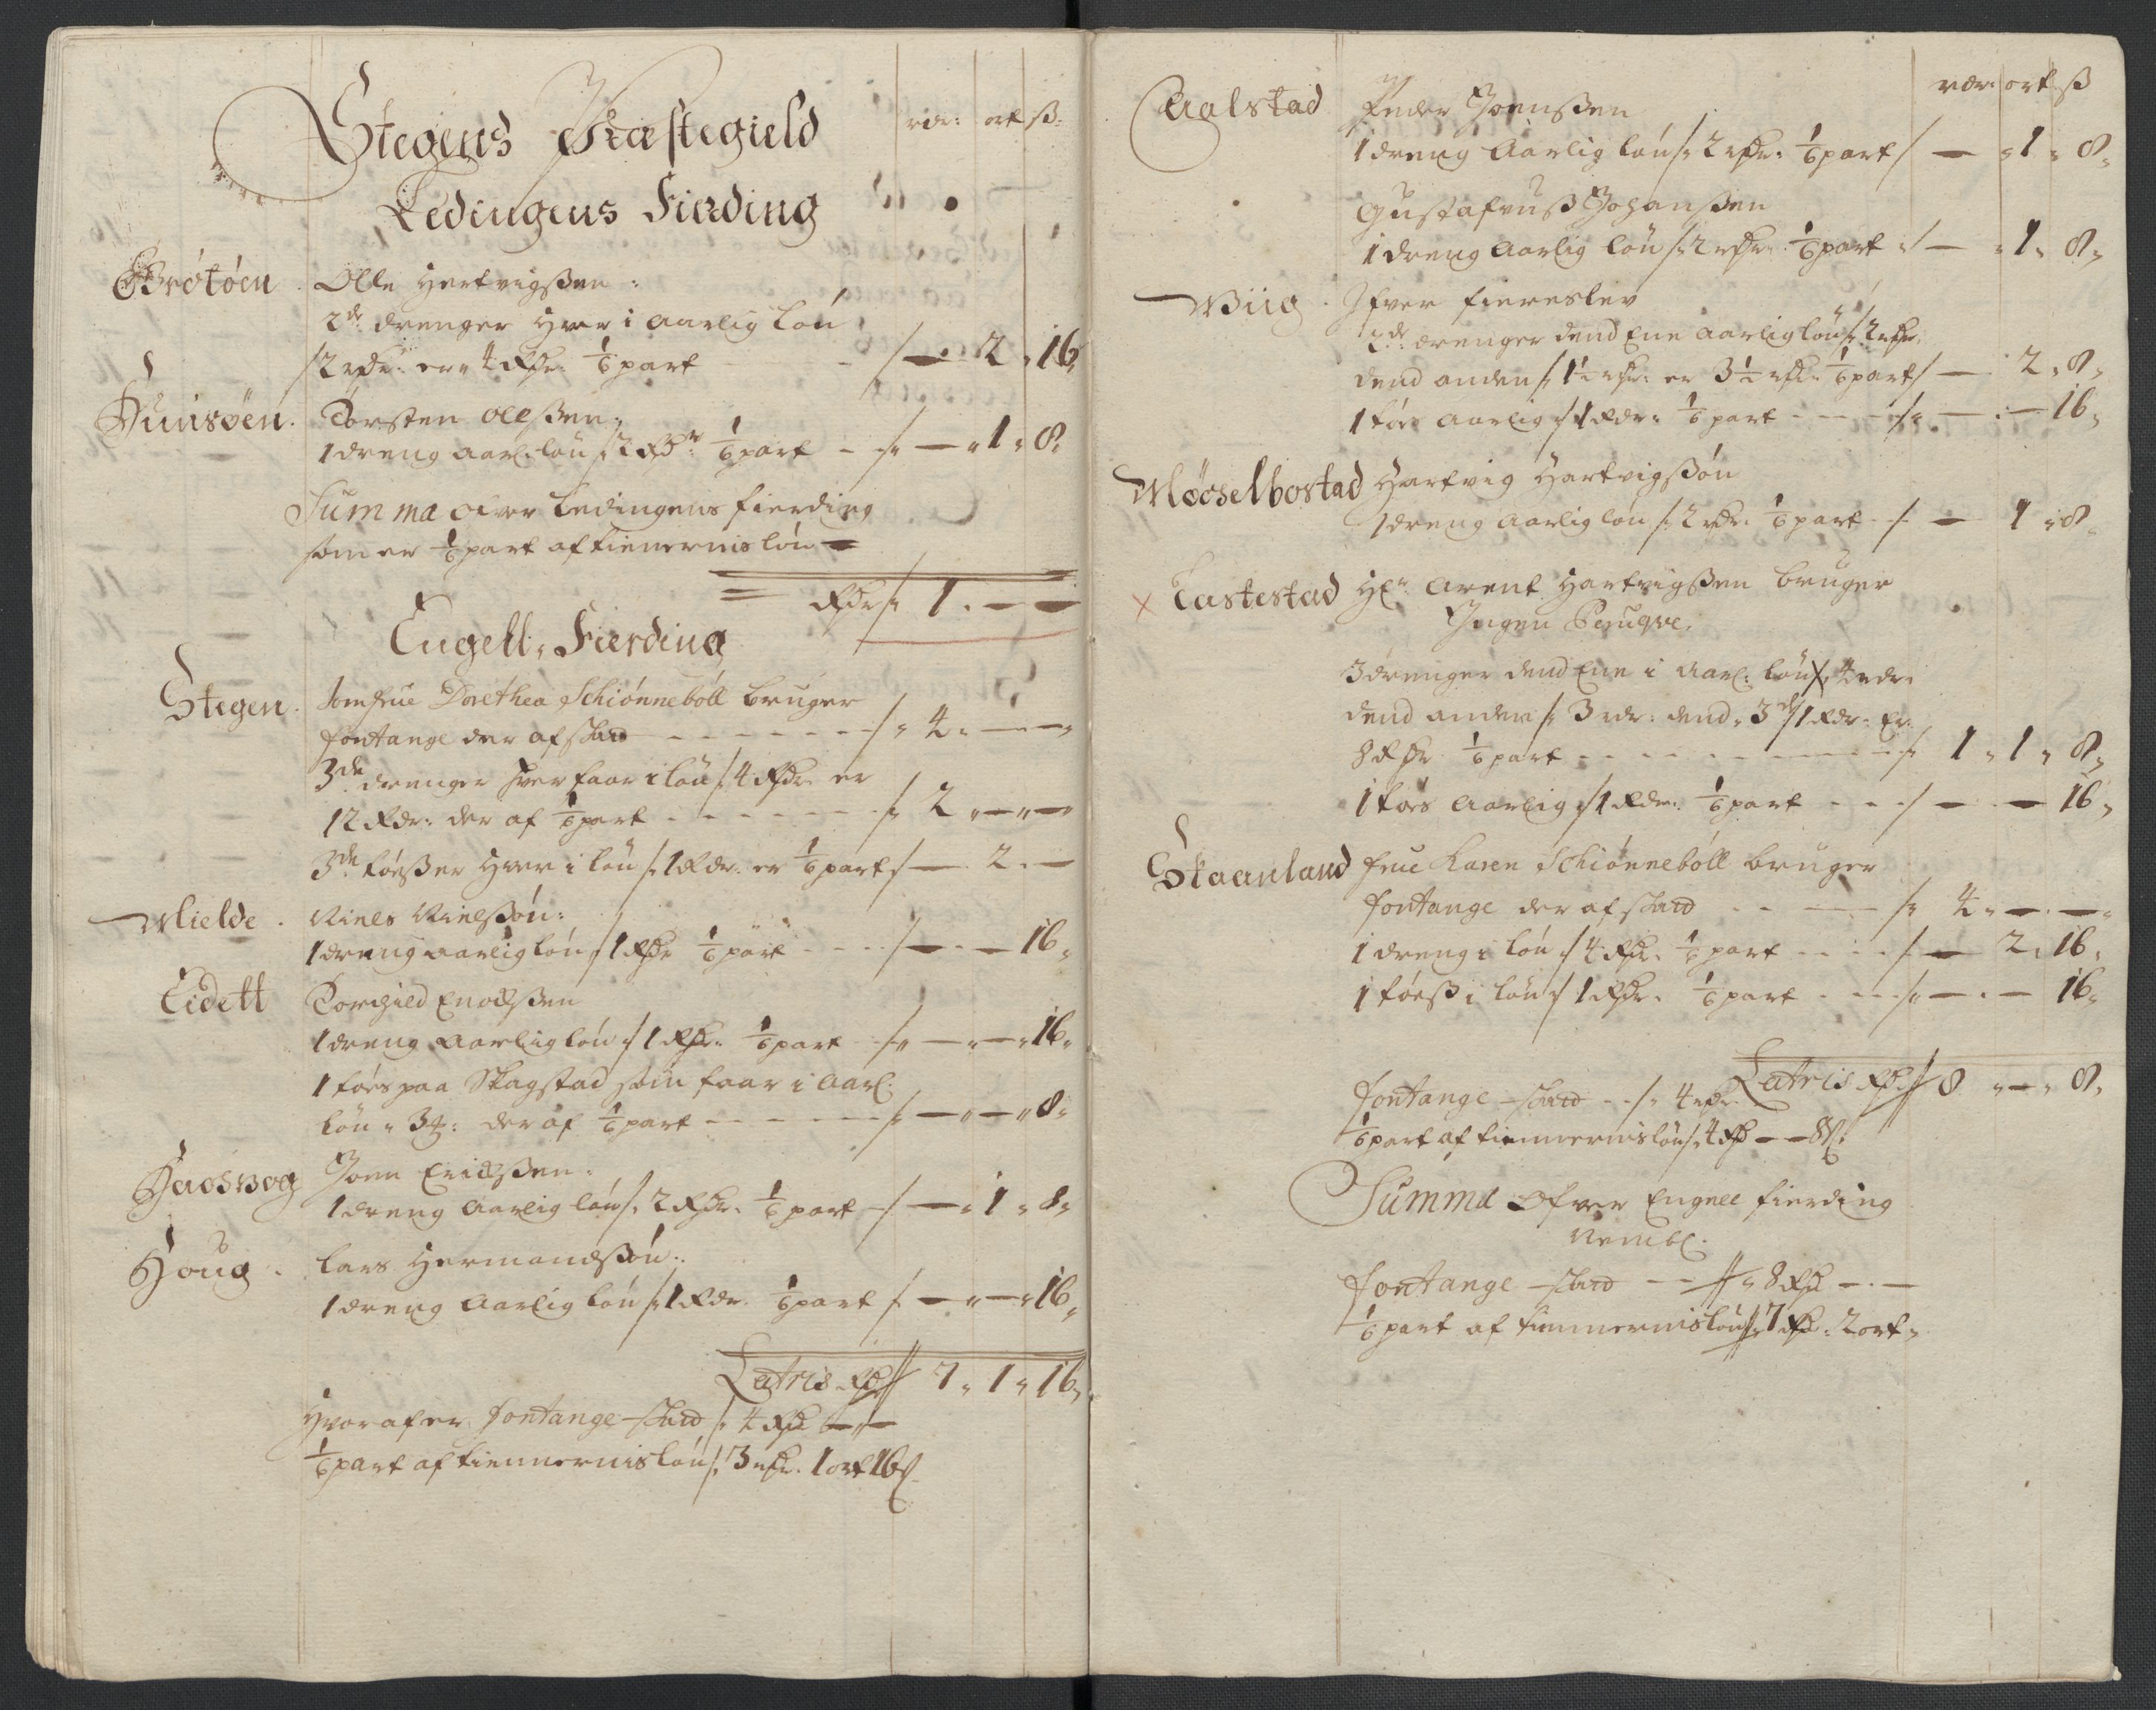 Stegens Præstegield
rdr: ort ß:
Ledingens Fierding
Grötöen . Olle Hertvigßen :
2de drenger Hver i aarlig lön
/: 2 rdr: er 4 Rdr: 1/6 part - /: — 2 " 16
Torsten Olßen:
1 dreng aarl: lön /: 2 Rdr 1/6 part - /: — " 1 " 8 "
Summa over Ledingens fierding
som er 1/6 part af tienernis lön —
Rdr /: 1 . — —
Engell: Fierding
Stegen . Jomfrue Dorethea Schiönneböll bruger
fontange der af - - - - - - /: " 4 " — —
3de drenger hver faar i lön /: 4 Rdr: er
12 Rdr: der af 1/6 part - - - - - - /: 2 " — " —
3de töeßer Hver i lön /: 1 Rdr: er 1/6 part /: — 2 . —
Mielde . Niels Nielßön:
1 dreng aarlig lön /: 1 Rdr 1/6 part - - - /: — . — 16 "
Eidett Torgied Enochßen
1 dreng aarlig lön /: 1 Rdr: 1/6 part - /: — " — " 16 "
1 töes paa Skagstad som faar i aarl:
lön " 3 : der af 1/6 part - - - - - /: — " — " 8 "
Joen Erichßen:
1 dreng aarlig lön /: 2 Rdr: 1/6 part - /: — " 1 " 8 "
Houg . Lars Hermandßön:
1 dreng aarlig lön /: 1 Rdr. 1/6 part /: — " — " 16 "
Latris Rdr 7 " 1 " 16 "
Hvoraf er fontange /: 4 Rdr — " —
1/6 part af tiennernis lön /: 3 rdr: 1 ort 16 ß
rdr: ort ß
Aalstad Peder Joenßen
1 dreng aarlig lön /: 2 rdr: 1/6 part /: — " 1 " 8 "
Gustafvuß Johanßen
1 dreng aarlig lön /: 2 rdr: 1/6 part /: — " 1 " 8 "
Wiig . Ifver
2de drenger dend Ene aarlig lön /: 2 rdr:
dend anden /: 1 1/2 rdr: er 3 1/2 rdr: 1/6 part /: — 2 " 8 "
1 töes aarlig /: 1 Rdr: 1/6 part - - - /: — . — 16 "
Möeselbostad Hartvig Hartvigßön
1 dreng aarlig lön /: 2 rdr: 1/6 part - /: — 1 " 8 "
x Tastestad Hr: Arent Hartvigßen bruger
Ingen Peruqve.
3 drenger dend Ene i aarl: lön /: 4 rdr:
dend anden /: 3 rdr: dend 3de /: 1 Rdr: Er
8 Rdr 1/6 part - - - - - - - /: 1 " 1 " 8 "
1 töes aarlig /: 1 Rdr: 1/6 part - - - /: — . — 16 "
Skaanland frue Karen Schiönneböll bruger
fontange der af - - - /: 4 " — . — "
1 dreng i lön /: 4 Rdr. 1/6 part - - - /: — 2 . 16 "
1 töeß i lön /: 1 Rdr. 1/6 part - - - /: — . — 16 "
Latris Rdr 8 " — " 8 "
fontange - - /: " 4 rdr:
1/6 part af tiennernis lön /: 4 Rdr — — 8 ß:
Summa Ofver Engell fierding
Nembl:
fontange - - /: " 8 Rdr — . —
1/6 part af tiennernis lön /: 7 Rdr: 2 ort "